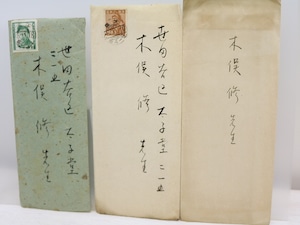 世田谷区太子堂
二一一
木俣修
先生
世田谷区太子堂二一一
木俣修
先生
木俣修
先生